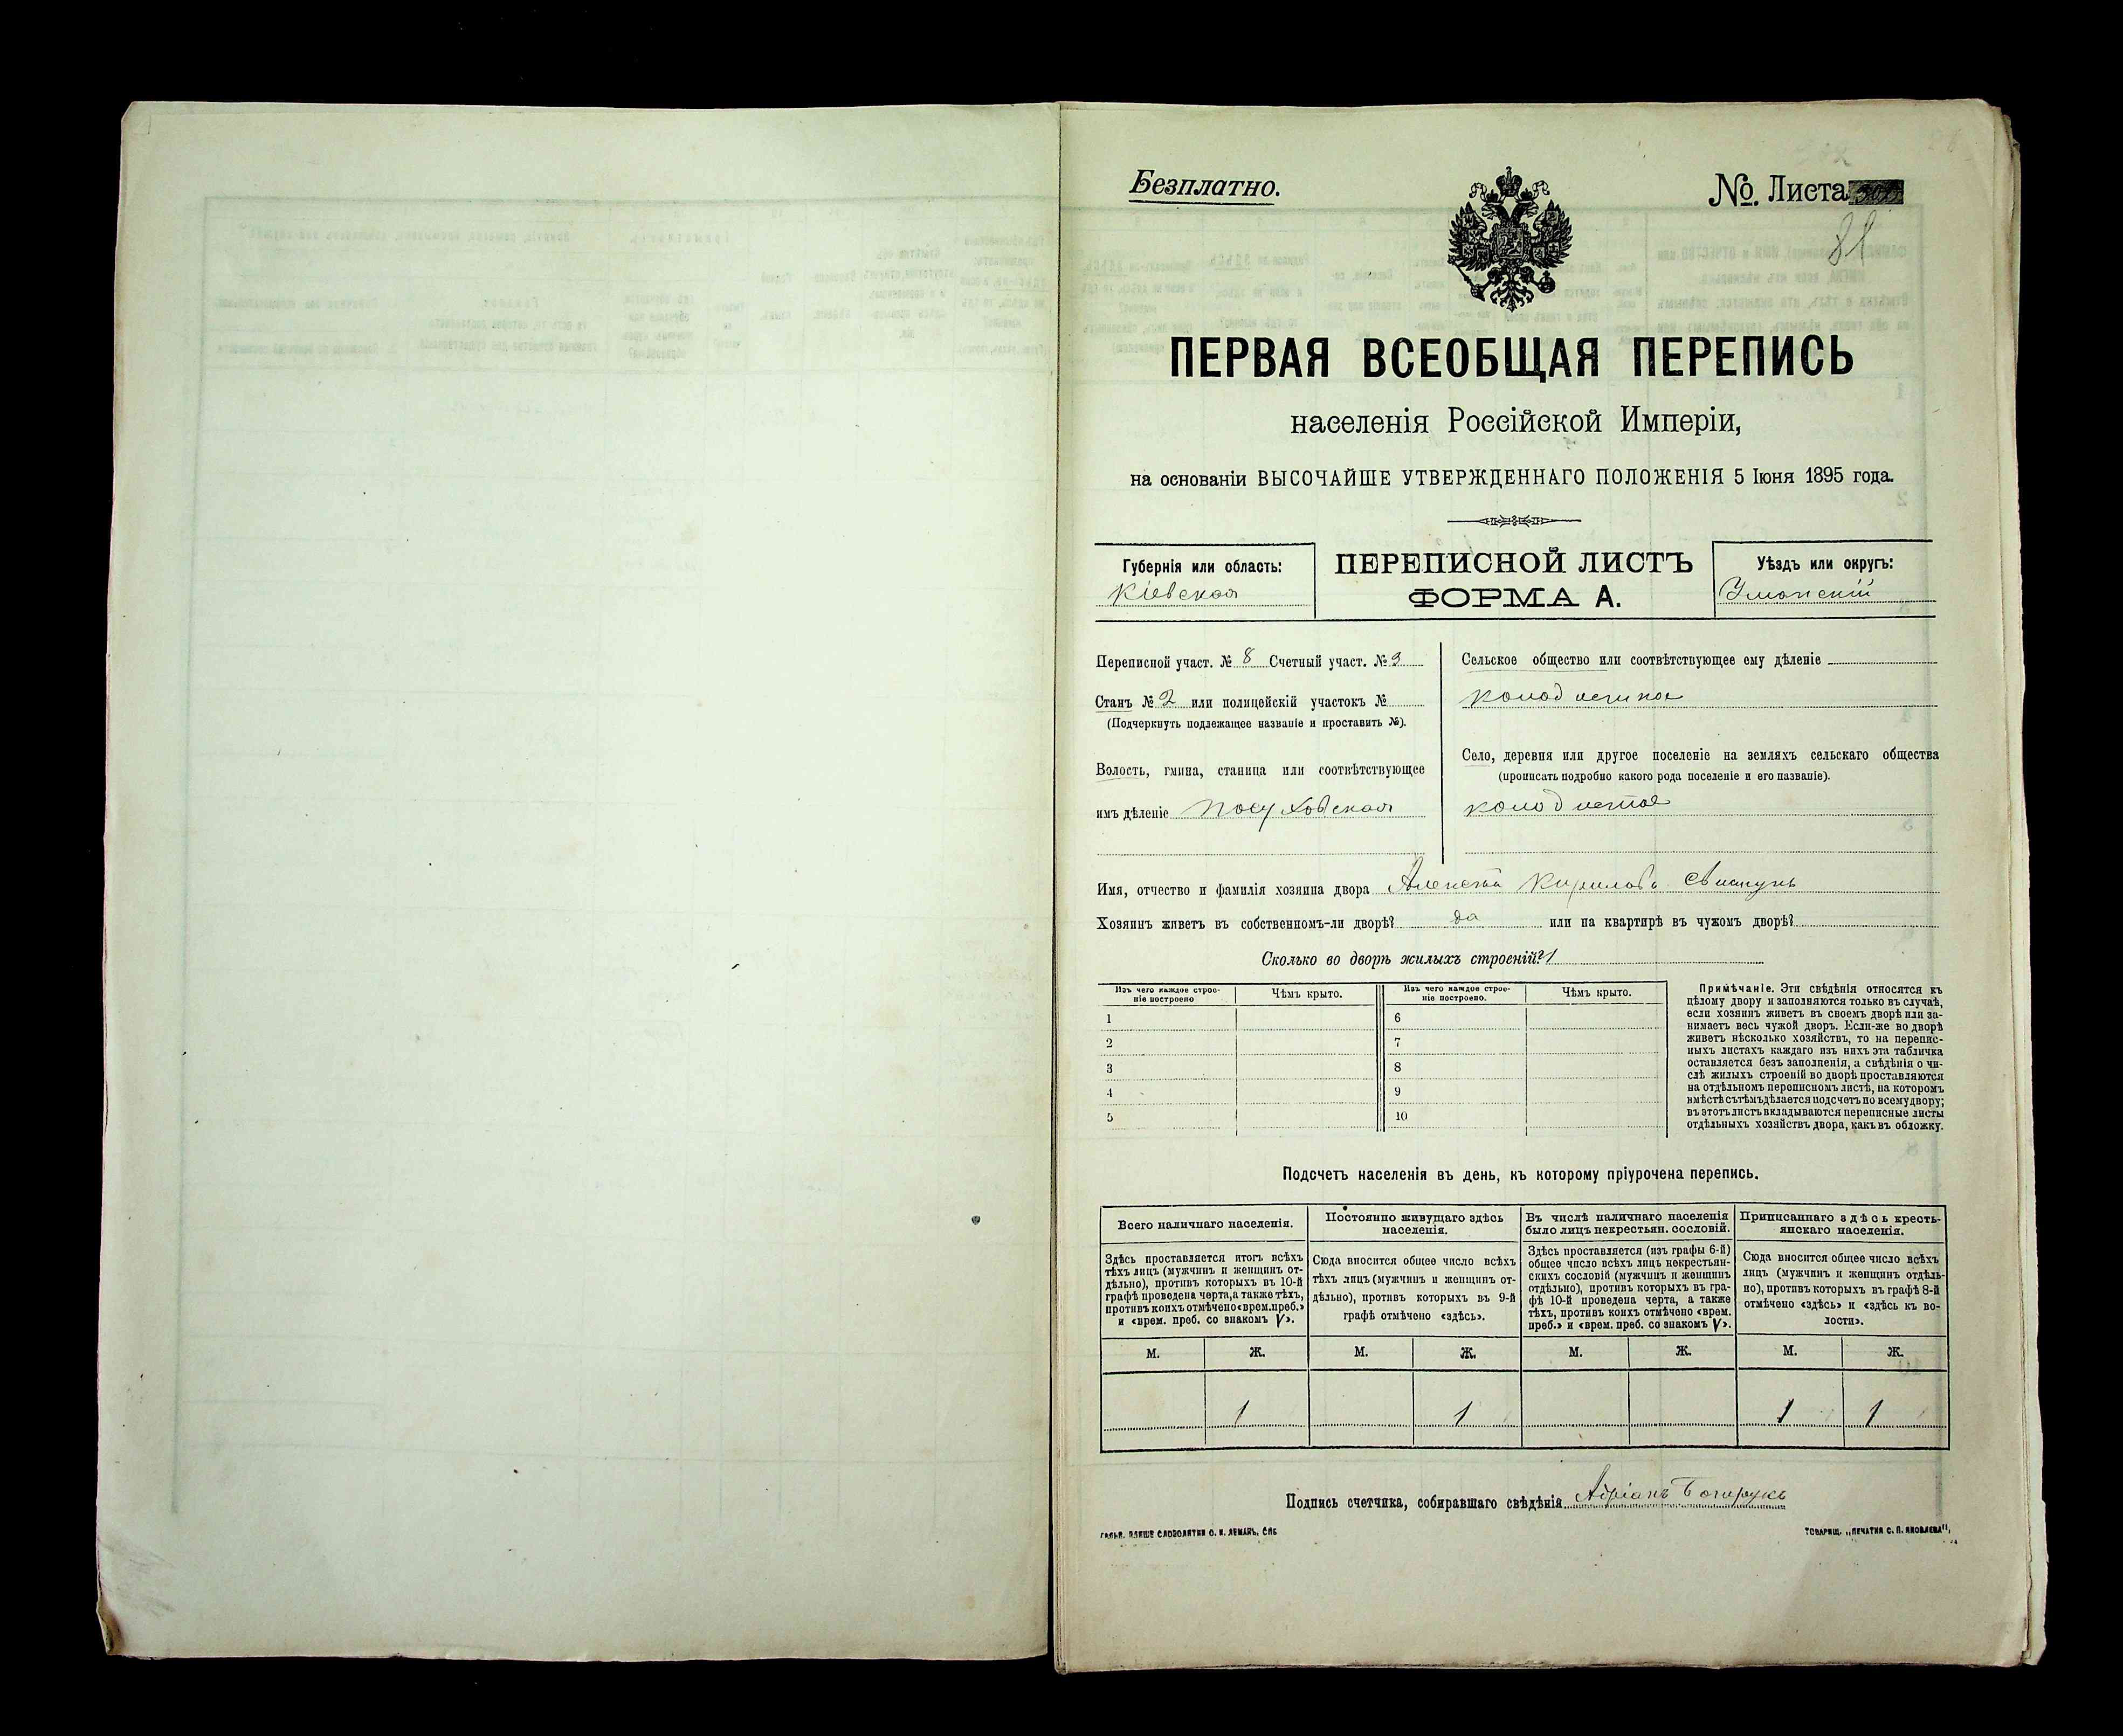 Безплатно.
№. Листа
81
ПЕРВАЯ ВСЕОБЩАЯ ПЕРЕПИСЬ
населенія Россійской Имперіи,
на основаніи ВЫСОЧАЙШЕ УТВЕРЖДЕННАГО ПОЛОЖЕНІЯ 5 Іюня 1895 года.
Губернія или область:
Кіевская
ПЕРЕПИСНОЙ ЛИСТЪ
ФОРМА А.
Уѣздъ или округъ:
Уманскій
Переписной участ. № 8 Счетный участ. № 9
Станъ № 2 или полицейскій участокъ №
(Подчеркнуть подлежащее названіе и проставить №).
Волость, гмина, станица или соотвѣтствующее
имъ дѣленіе Посуховская
Сельское общество или соотвѣтствующее ему дѣленіе
Колодистое
Село, деревня или другое поселеніе на земляхъ сельскаго общества
(прописать подробно какого рода поселеніе и его названіе).
колодистое
Имя, отчество и фамилія хозяина двора Алексѣй Кирилловъ
Хозяинъ живетъ въ собственномъ-ли дворѣ? да или на квартирѣ въ чужомъ дворѣ?
Сколько во дворѣ жилыхъ строеній? 1
Изъ чего каждое строе-
ніе построено
Чѣмъ крыто.
Изъ чего каждое строе-
ніе построено.
Чѣмъ крыто.
1 6
2 7
3 8
4 9
5 10
Примѣчаніе. Эти свѣдѣнія относятся къ
цѣлому двору и заполняются только въ случаѣ,
если хозяинъ живетъ въ своемъ дворѣ или за-
нимаетъ весь чужой дворъ. Если-же во дворѣ
живетъ нѣсколько хозяйствъ, то на перепис-
ныхъ листахъ каждаго изъ нихъ эта табличка
оставляется безъ заполненія, а свѣдѣнія о чи-
слѣ жилыхъ строеній во дворѣ проставляются
на отдѣльномъ переписномъ листѣ, на которомъ
вмѣстѣ съ тѣмъ дѣлается подсчетъ по всему двору;
въ этотъ листъ вкладываются переписные листы
отдѣльныхъ хозяйствъ двора, какъ въ обложку.
Подсчетъ населенія въ день, къ которому пріурочена перепись.
Всего наличнаго населенія.
Здѣсь проставляется итогъ всѣхъ
тѣхъ лицъ (мужчинъ и женщинъ от-
дѣльно), противъ которыхъ въ 10-й
графѣ проведена черта, а также тѣхъ,
противъ коихъ отмѣчено «врем. преб.»
и «врем. преб. со знакомъ V».
Постоянно живущаго здѣсь
населенія.
Сюда вносится общее число всѣхъ
тѣхъ лицъ (мужчинъ и женщинъ от-
дѣльно), противъ которыхъ въ 9-й
графѣ отмѣчено «здѣсь».
Въ числѣ наличнаго населенія
было лицъ некрестьян. сословій.
Здѣсь проставляется (изъ графы 6-й)
общее число всѣхъ лицъ некрестьян-
скихъ сословій (мужчинъ и женщинъ
отдѣльно), противъ которыхъ въ гра-
фѣ 10-й проведена черта, а также
тѣхъ, противъ коихъ отмѣчено «врем.
преб.» и «врем. преб. со знакомъ V».
Приписаннаго здѣсь кресть-
янскаго населенія.
Сюда вносится общее число всѣхъ
лицъ (мужчинъ и женщинъ отдѣль-
но), противъ которыхъ въ графѣ 8-й
отмѣчено «здѣсь» и «здѣсь къ во-
лости».
М. Ж. М. Ж. М. Ж. М. Ж.
1 1 1 1
Подпись счетчика, собиравшаго свѣдѣнія Адріанъ
ГАЛЬВ. КЛИШЕ СЛОВОЛИТНИ О. И. ЛЕМАНЪ, СПБ
ТОВАРИЩ. „ПЕЧАТНЯ С. П. ЯКОВЛЕВА",